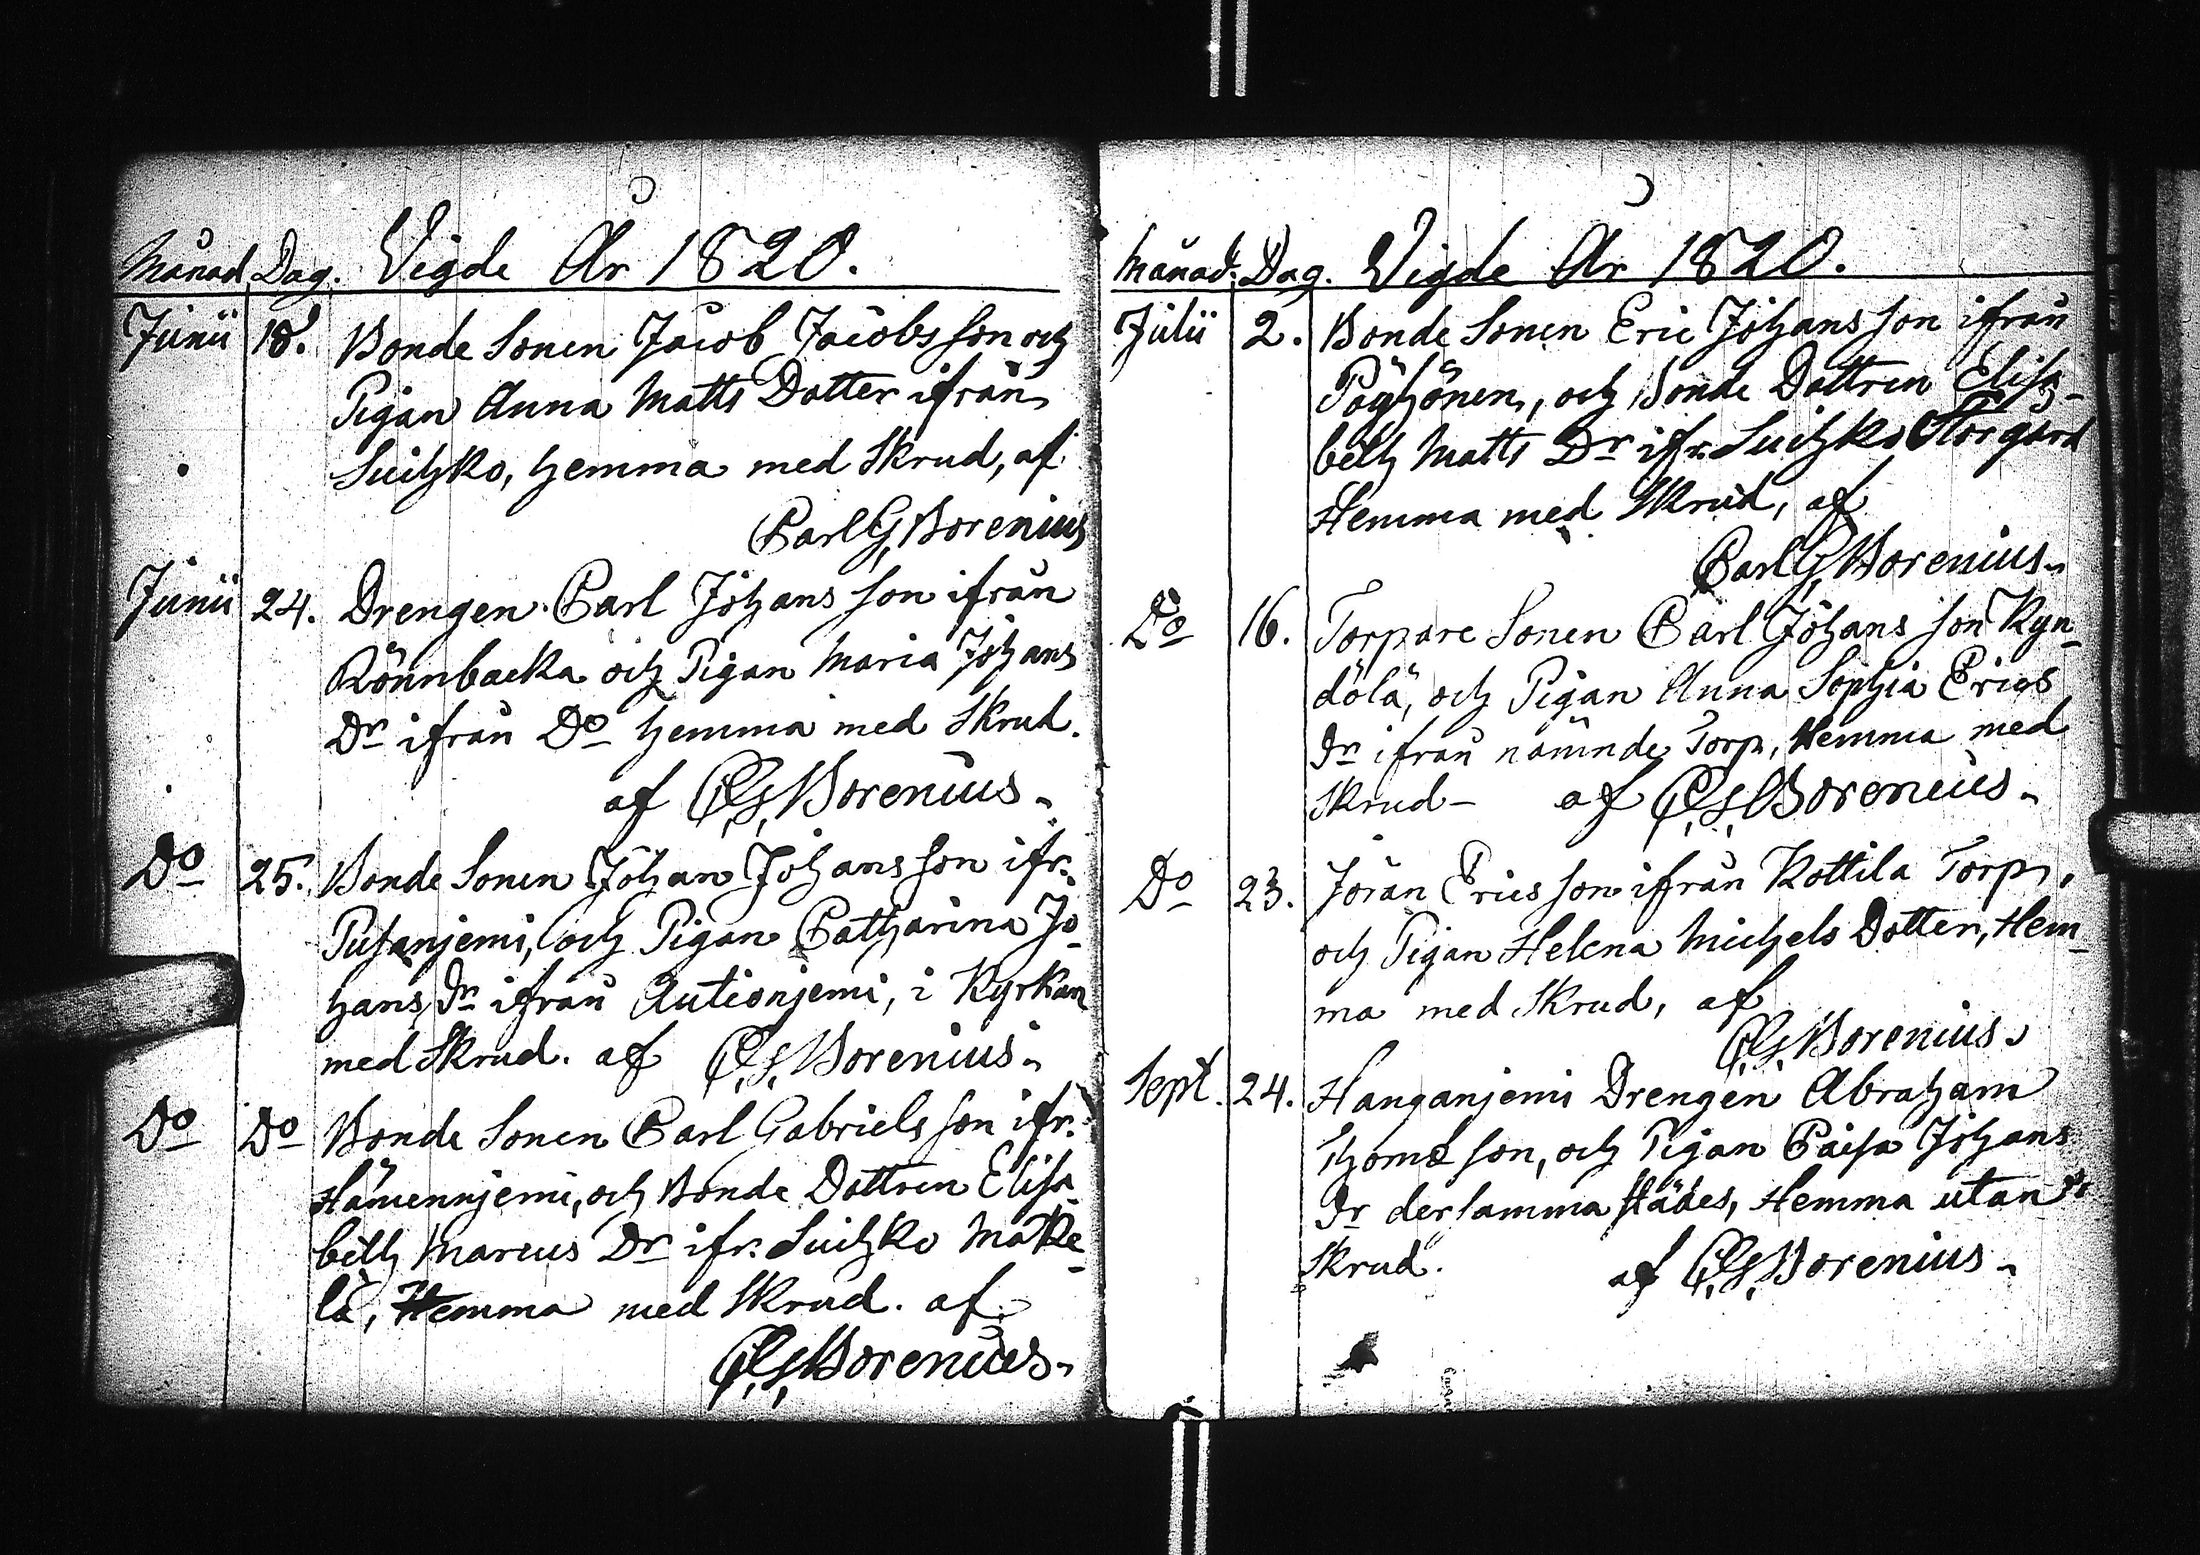 Månad. Dag. Vigde År 1820.
Junii 18. Bonde Sonen Jacob Jacobs son och
Pigan Anna Matts Dotter ifrån
Suihko, hemma med Skrud, af
Carl G Borenius
Junii 24. Drengen Carl Johans son ifrån
Rönnbacka och Pigan Maria Johans
Dr ifrån Do hemma med Skrud.
af C. G. Borenius
Do 25. Bonde Sonen Johan Johans son ifr.
Pusanjemi, och Pigan Catharina Jo-
hans Dr ifrån Autionjemi, i Kyrkan
med Skrud. af C. G. Borenius
Do Do Bonde Sonen Carl Gabriels son ifr.
Hämennjemi, och Bonde Dottren Elisa-
beth Marcus Dr ifr. Suihko Mäke-
lä, Hemma med Skrud. af
C. G. Borenius
Månad. Dag. Vigde År 1820.
Julii 2. Bonde Sonen Eric Johans son ifrån
Pöyhönen, och Bonde Dottren Elisa-
beth Matts Dr ifr. Suihko Storgård
Hemma med Skrud, af
Carl G Borenius
Do 16. Torpare Sonen Carl Johans son Kyn-
dölä, och Pigan Anna Sophia Erics
Dr ifrån nämnde Torp, Hemma med
Skrud - af C. G. Borenius
Do 23. Jöran Erics son ifrån Kottila Torp,
och Pigan Helena Michels Dotter, Hem-
ma med Skrud, af
C. G. Borenius
Sept. 24. Hanganjemi Drengen Abraham
Thomæ son, och Pigan Caisa Johans
Dr der samma städes, Hemma utan
Skrud. af C. G. Borenius